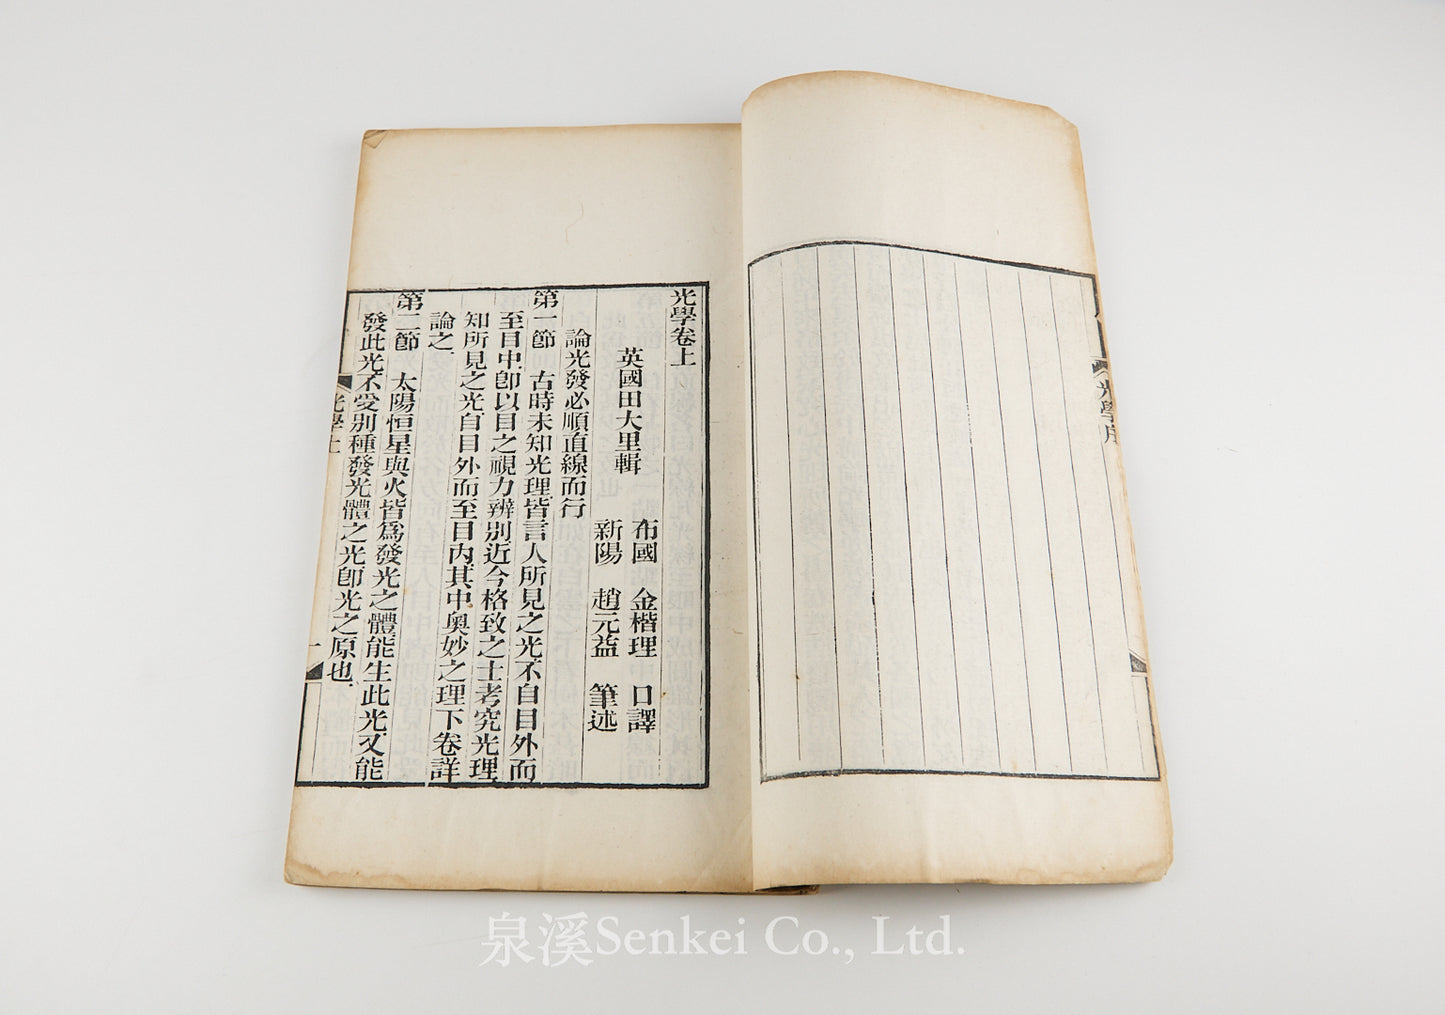 光學卷上
英國田大里輯
布國 金楷理 口譯
新陽 趙元益 筆述
論光發必順直線而行
第一節 古時未知光理皆言人所見之光不自目外而
至目中卽以目之視力辨別近今格致之士考究光理
知所見之光自目外而至目內其中奧妙之理下卷詳
論之
第二節 太陽恒星與火皆爲發光之體能生此光又能
發此光不受別種發光體之光卽光之原也
光學上
一
光學序
泉溪Senkei Co., Ltd.